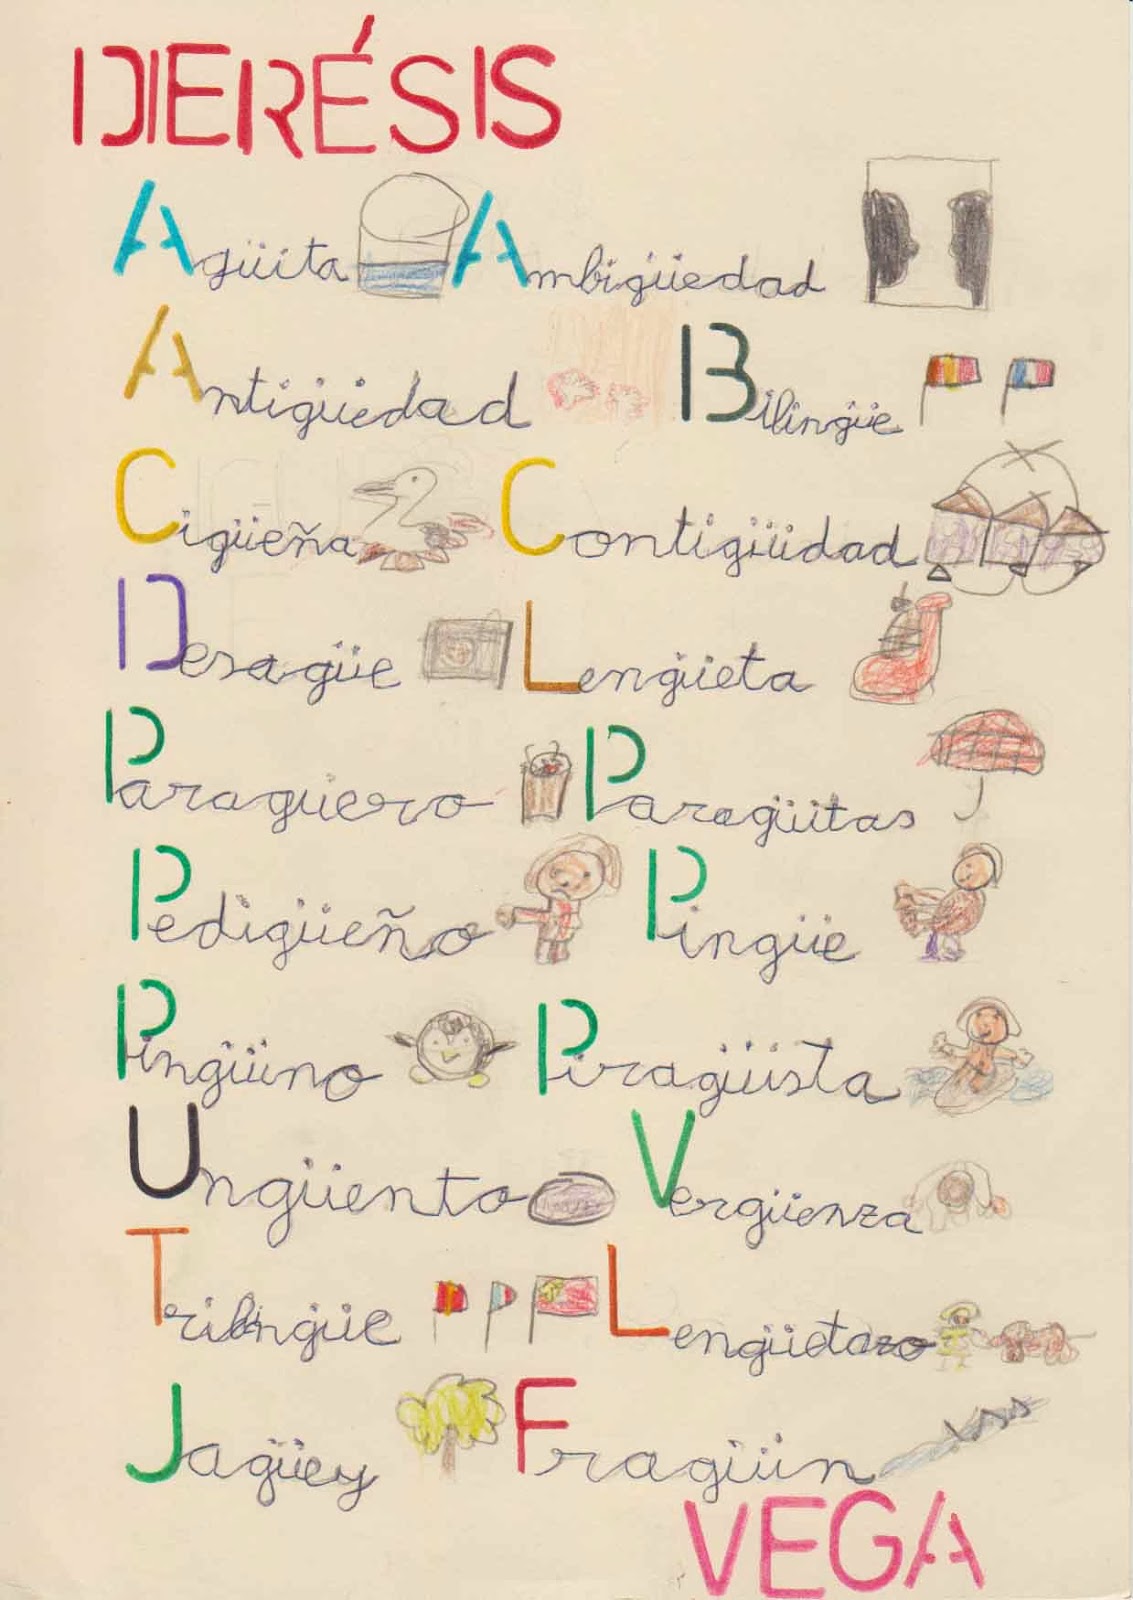 DIERÉSIS
Agüita Ambigüedad
Antigüedad Bilingüe
Cigüeña Contigüidad
Desagüe Lengüeta
Paragüero Paragüitas
Pedigüeño Pingüe
Pingüino Piragüista
Ungüento Vergüenza
Trilingüe Lengüetazo
Jagüey Fragüín
VEGA